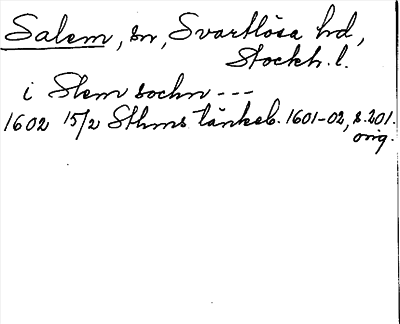 Salem, sn, Svartlösa hd,
Stockh. l.
i Slem sochn ---
1602 15/2 Sthms tänkeb. 1601-02, s. 201.
orig.